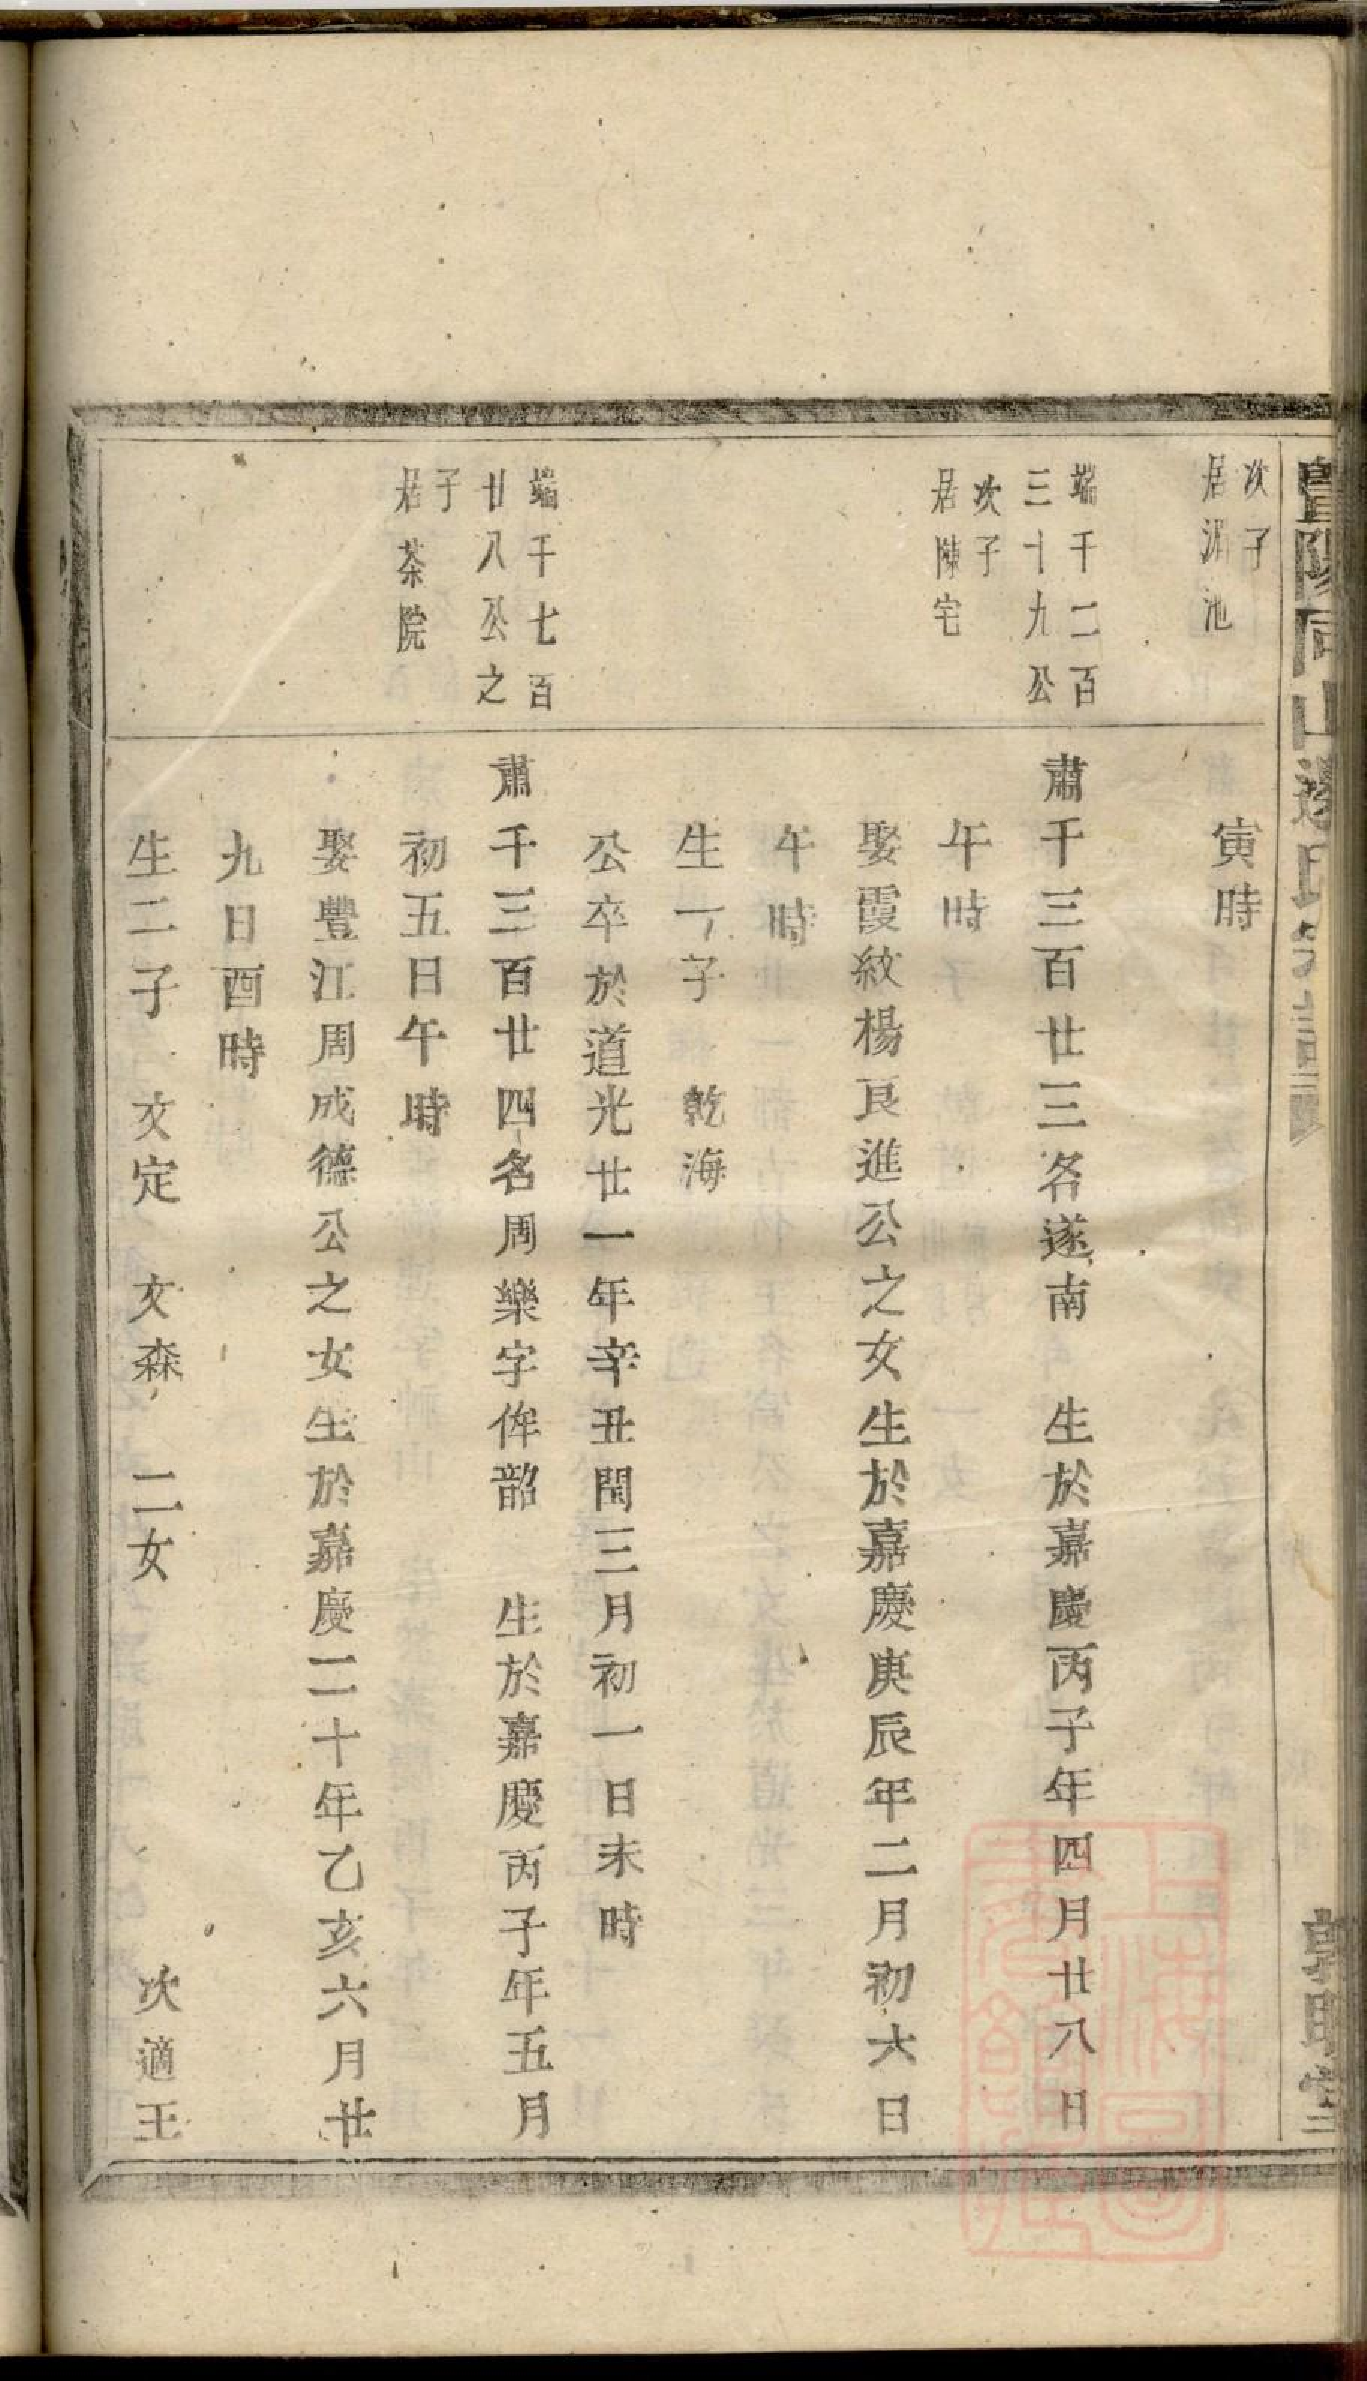 暨陽同山邊氏宗譜
敦睦堂
次子
居湄池
寅時
端千二百
三十九公
次子
居陳宅
肅千三百廿三名遂南 生於嘉慶丙子年四月廿八日
午時
娶霞紋楊良進公之女生於嘉慶庚辰年二月初六日
午時
生一子 乾海
公卒於道光廿一年辛丑閏三月初一日未時
端千七百
廿八公之
子
居茶院
肅千三百廿四名周樂字侔韶 生於嘉慶丙子年五月
初五日午時
娶豐江周成德公之女生於嘉慶二十年乙亥六月廿
九日酉時
生二子 文定 文森 二女 次適王
上海圖書館藏